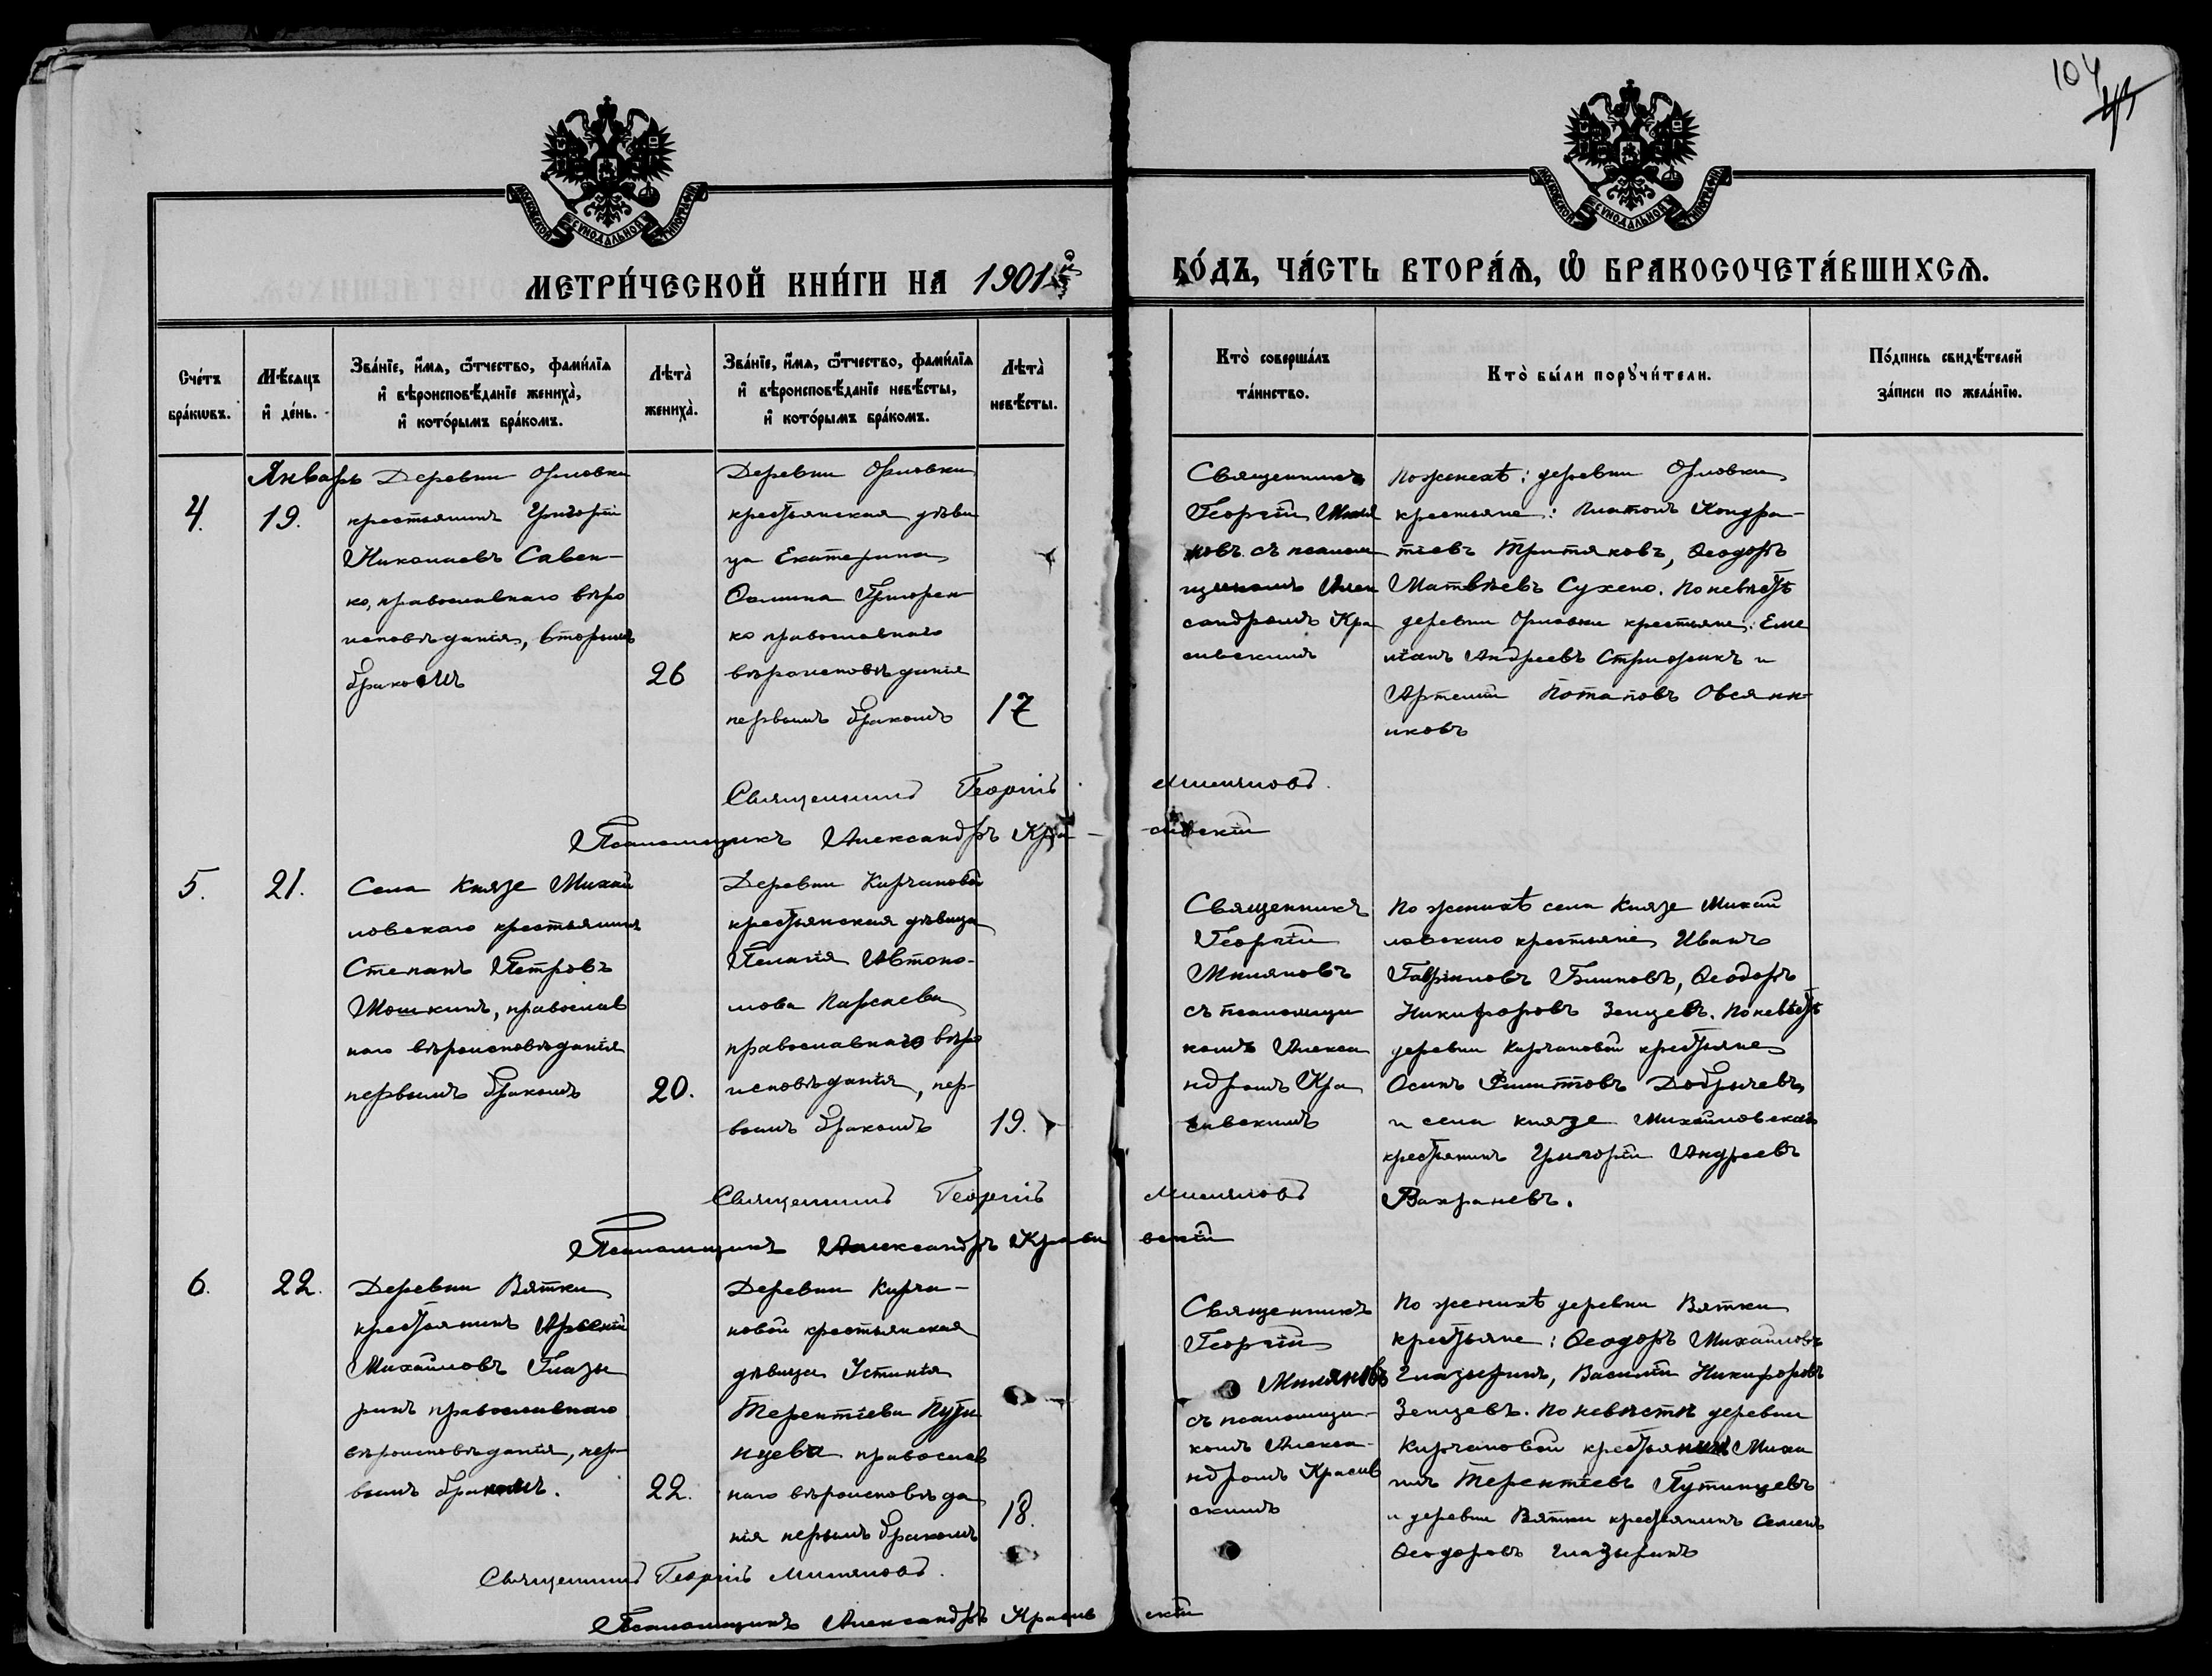 104
МОСКОВСКОЙ СѴНОДАЛЬНОЙ ТИПОГРАФІИ
МОСКОВСКОЙ СѴНОДАЛЬНОЙ ТИПОГРАФІИ
МЕТРИ́ЧЕСКОЙ КНИ́ГИ НА 1901й
ГО́ДЪ, ЧА́СТЬ ВТОРА́Ѧ, Ѽ БРАКОСОЧЕТА́ВШИХСѦ.
Сче́тъ
бра́кѡвъ.
Мѣ́сѧцъ
и҆ де́нь.
Зва́нїе, и҆́мѧ, ѻ҆́тчество, фами́лїѧ
и҆ вѣроисповѣ́данїе жениха̀,
и҆ кото́рымъ бра́комъ.
Лѣта̀
жениха̀.
Зва́нїе, и҆́мѧ, ѻ҆́тчество, фами́лїѧ
и҆ вѣроисповѣ́данїе невѣ́сты,
и҆ кото́рымъ бра́комъ.
Лѣта̀
невѣ́сты.
Кто̀ соверша́лъ
та́инство.
Кто̀ бы́ли порꙋчи́тели.
По́дпись свидѣ́телей
за́писи по жела́нїю.
4.
Январь
19.
Деревни Орловки
крестьянинъ Григорій
Николаевъ Савен-
ко, православнаго вѣро
исповѣданія, вторымъ
бракомъ
26
Деревни Орловки
крестьянская дѣви
ца Екатерина
Ѳомина Григорен
ко православнаго
вѣроисповѣданія
первымъ бракомъ
17
Священникъ
Георгій Миля
новъ съ псалом
щикомъ Алек
сандромъ Кра
сивскимъ
По женихѣ: деревни Орловки
крестьяне: Платонъ Кондра-
тіевъ Третяковъ, Ѳеодоръ
Матвѣевъ Сухено. По невѣстѣ
деревни Орловки крестьяне: Еме
ліанъ Андреевъ Стрижикъ и
Артемій Потаповъ Овсянн-
иковъ
Священникъ Георгій Миляновъ.
Псаломщикъ Александръ Кра-сивскій
5.
21.
Села Князе Михай
ловскаго крестьянинъ
Степанъ Петровъ
Мошкинъ, православ
наго вѣроисповѣданія
первымъ бракомъ
20.
Деревни Кирчановой
крестьянская дѣвица
Пелагія Автоно-
мова Парсаева
православнаго вѣро
исповѣданія, пер-
вымъ бракомъ
19.
Священникъ
Георгій
Миляновъ
съ псаломщи
комъ Алекса
ндромъ Кра
сивскимъ
По женихѣ села Князе Михай
ловскаго крестьяне Иванъ
Гавріиловъ Блиновъ, Ѳеодоръ
Никифоровъ Зенцевъ. По невѣстѣ
деревни Кирчановой крестьяне
Осипъ Филиттовъ Добрычевъ
и села Князе Михайловскаго
крестьянинъ Григорій Андреевъ
Вахраневъ.
Священникъ Георгій Миляновъ
Псаломщикъ Александръ Красивскій
6.
22.
Деревни Вятки
крестьянинъ Арсеній
Михайловъ Глазы
ринъ православнаго
вѣроисповѣданія, пер
вымъ бракомъ.
22.
Деревни Кирча-
новой крестьянская
дѣвица Устинія
Терентіева Пути
нцева православ
наго вѣроисповѣда
нія первымъ бракомъ
18.
Священникъ
Георгій
Миляновъ
съ псаломщи-
комъ Алекса-
ндромъ Красив
скимъ
По женихѣ деревни Вятки
крестьяне: Ѳеодоръ Михайловъ
Глазыринъ, Василій Никифоровъ
Зенцевъ. По невѣстѣ деревни
Кирчановой крестьянинъ Миха
илъ Терентіевъ Путинцевъ
и деревни Вятки крестьянинъ Семенъ
Ѳеодоровъ Глазыринъ
Священникъ Георгій Миляновъ.
Псаломщикъ Александръ Красивскій